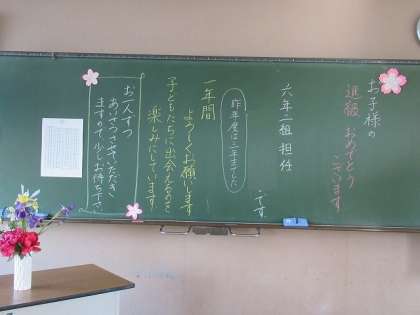 お子様の
進級 おめでとう
ございます
六年二組 担任
です
昨年度は三年生でした
一年間
よろしくお願いします
子どもたちに出会えるのを
楽しみにしています
お一人ずつ
あいさつさせていただき
ますので少しお待ち下さい